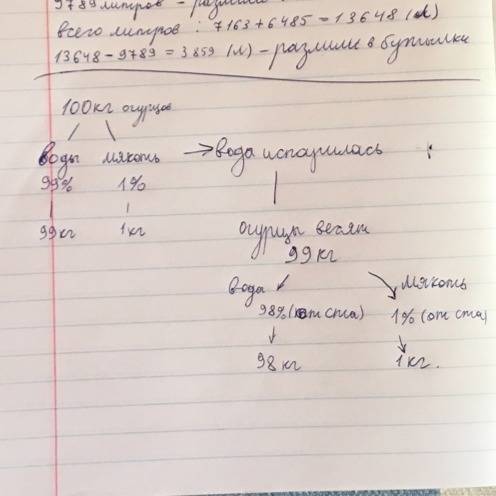 9789 литров - разлили
всего литров : 7163 + 6485 = 13648 (л)
13648 - 9789 = 3859 (л) - разлили в бутылки
100кг огурцов
воды мякоть → вода испарилась
99% 1%
99кг 1кг
огурцы весят
99кг
вода мякоть
98% (от ста) 1% (от ста)
98кг 1кг.